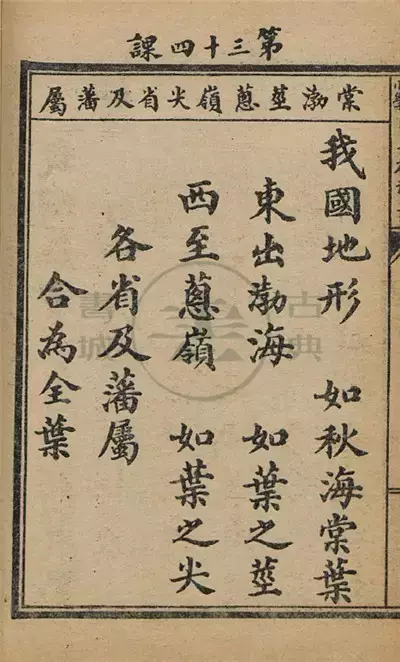 第三十四課
棠渤莖蔥嶺尖省及藩屬
我國地形　如秋海棠葉
東出渤海　如葉之莖
西至蔥嶺　如葉之尖
各省及藩屬
合為全葉
古典
書城